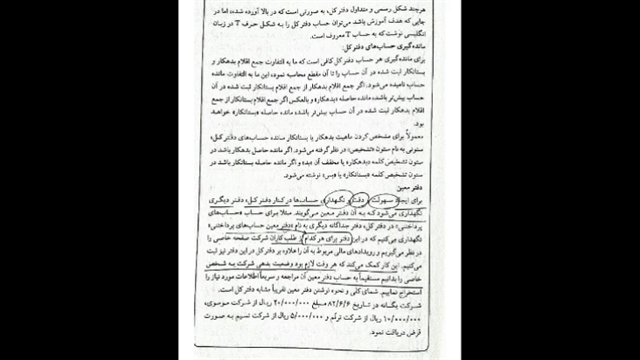 هرچند شکل رسمی و متداول دفتر کل، به صورتی است که در بالا آورده شده، اما در
جایی که هدف آموزش باشد می‌توان حساب دفتر کل را به شکل حرف T در زبان
انگلیسی نوشت که به حساب T معروف است.
مانده‌گیری حساب‌های دفتر کل:
برای مانده‌گیری هر حساب دفتر کل کافی است که ما به التفاوت جمع اقلام بدهکار و
بستانکار ثبت شده در آن حساب را تا آن مقطع محاسبه نموده، این ما به التفاوت مانده
حساب نامیده می‌شود. اگر جمع اقلام بدهکار از جمع اقلام بستانکار ثبت شده در آن
حساب بیش‌تر باشد، مانده حاصله «بدهکار» و بالعکس اگر جمع اقلام بستانکار از جمع
اقلام بدهکار ثبت شده در آن حساب بیش‌تر باشد مانده حاصله «بستانکار» خواهد
بود.
معمولاً برای مشخص کردن ماهیت بدهکار یا بستانکار مانده حساب‌های دفتر کل،
ستونی به نام ستون «تشخیص» در نظر گرفته می‌شود. اگر مانده حاصل بدهکار باشد در
ستون تشخیص کلمه «بدهکار» یا مخفف آن «بد» و اگر مانده بستانکار باشد در
ستون تشخیص کلمه «بستانکار» یا «بس» نوشته می‌شود.
دفتر معین
برای ایجاد سهولت، دقت و نگهداری حساب‌ها در کنار دفتر کل، دفتر دیگری
نگهداری می‌شود که به آن دفتر معین می‌گویند. مثلا برای حساب «حساب‌های
پرداختنی» در دفتر کل، دفتر جداگانه دیگری به نام «دفتر معین حساب‌های پرداختنی»
نگهداری می‌کنیم که در این دفتر برای هر کدام از طلب‌کاران شرکت صفحه خاصی را
در نظر می‌گیریم و رویدادهای مالی مربوط به آن را علاوه بر دفتر کل در این دفتر نیز ثبت
می‌کنیم. این کار کمک می‌کند که هر وقت لازم بود وضعیت بدهی شرکت به شخص
خاصی را بدانیم مستقیماً به حساب دفتر معین آن مراجعه و سریعاً اطلاعات مورد نیاز را
استخراج نماییم. شمای کلی و نحوه نوشتن دفتر معین تقریباً مشابه دفتر کل است.
شرکت یگانه در تاریخ ۸۲/۶/۶ مبلغ ۲۰/۰۰۰/۰۰۰ ریال از شرکت موسوی،
۱۰/۰۰۰/۰۰۰ ریال از شرکت ترنم و ۵/۰۰۰/۰۰۰ ریال از شرکت نسیم به صورت
قرض دریافت نمود.